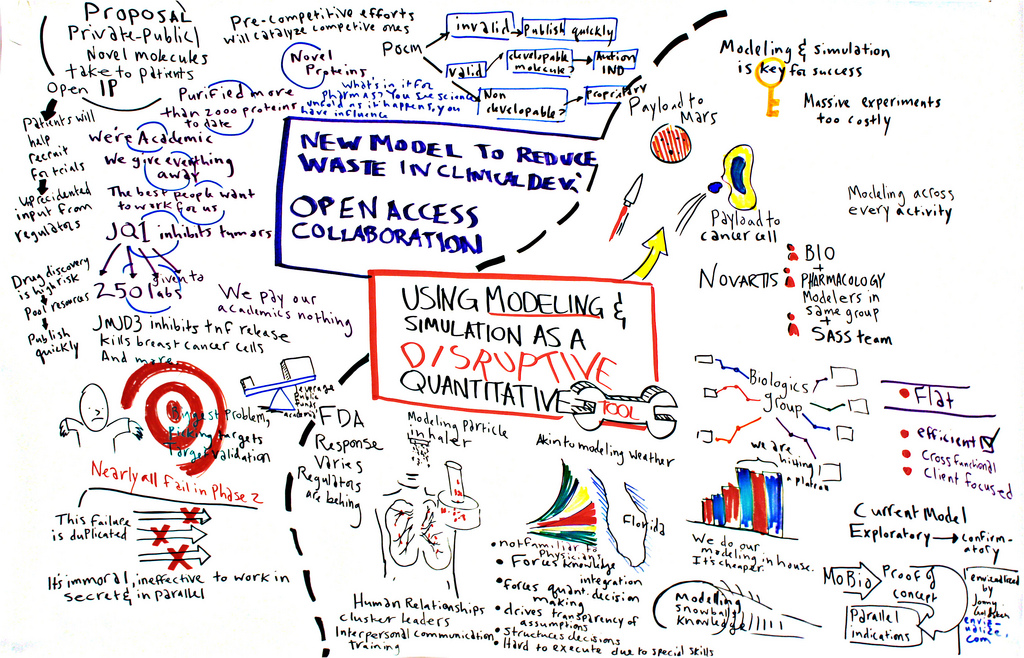 Proposal
Private-Public
Novel molecules
take to patients
Open IP
Patients will
help
recruit
for trials
uprecidented
input from
regulators
Drug discovery
is high risk
Pool resources
Publish
quickly
Pre-competitive efforts
will catalyze competive ones
Novel
Proteins
Purified more
than 2000 proteins
to date
What's in it for
Pharmas? You see science
unfolds it happens, you
have influence
We're Academic
We give everything
away
The best people want
to work for us
JQ1 inhibits tumors
given to
250 labs
We pay our
academics nothing
JMJD3 inhibits tnf release
Kills breast cancer cells
And more
POCM
invalid
Publish quickly
valid
developable
molecule?
Auction
IND
Non
developable?
Proprietary
NEW MODEL TO REDUCE
WASTE IN CLINICAL DEV:
OPEN ACCESS
COLLABORATION
Biggest Problem
Picking targets
Target validation
leverage
Public
Funds
academic
Nearly all fail in Phase 2
This failure
is duplicated
It's immoral, ineffective to work in
secret & in parallel
USING MODELING &
SIMULATION AS A
DISRUPTIVE
QUANTITATIVE
TOOL
Payload to
Mars
Payload to
cancer cell
Modeling & simulation
is key for success
Massive experiments
too costly
Modeling across
every activity
NOVARTIS
BIO
+
PHARMACOLOGY
Modelers in
same group
+
SASS team
FDA
Response
Varies
Regulators
are behing
Modeling particle
inhaler
Human Relationships
cluster leaders
Interpersonal communication
training
Akin to modeling weather
Florida
• not familiar to
physicians
• Forces knowledge
integration
• forces quant. decision
making
• drives transparency of
assumptions
• Structures decisions
• Hard to execute due to special skills
Biologics
group
we are
hitting
a plateau
We do our
modeling in house.
It's cheaper.
Modelling
snowballs
knowledge
• Flat
• efficient
• Cross functional
• Client focused
Current Model
Exploratory
Confirm-
atory
MoBio
Proof of
concept
Parallel
indications
envisualized
by
envis-
ualize.
com